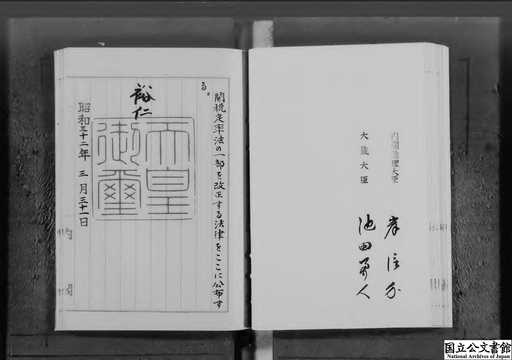 関税定率法の一部を改正する法律をここに公布す
る。
裕仁
天皇御璽
昭和三十二年三月三十一日
内閣総理大臣
岸信介
大蔵大臣
池田勇人
国立公文書館
National Archives of Japan